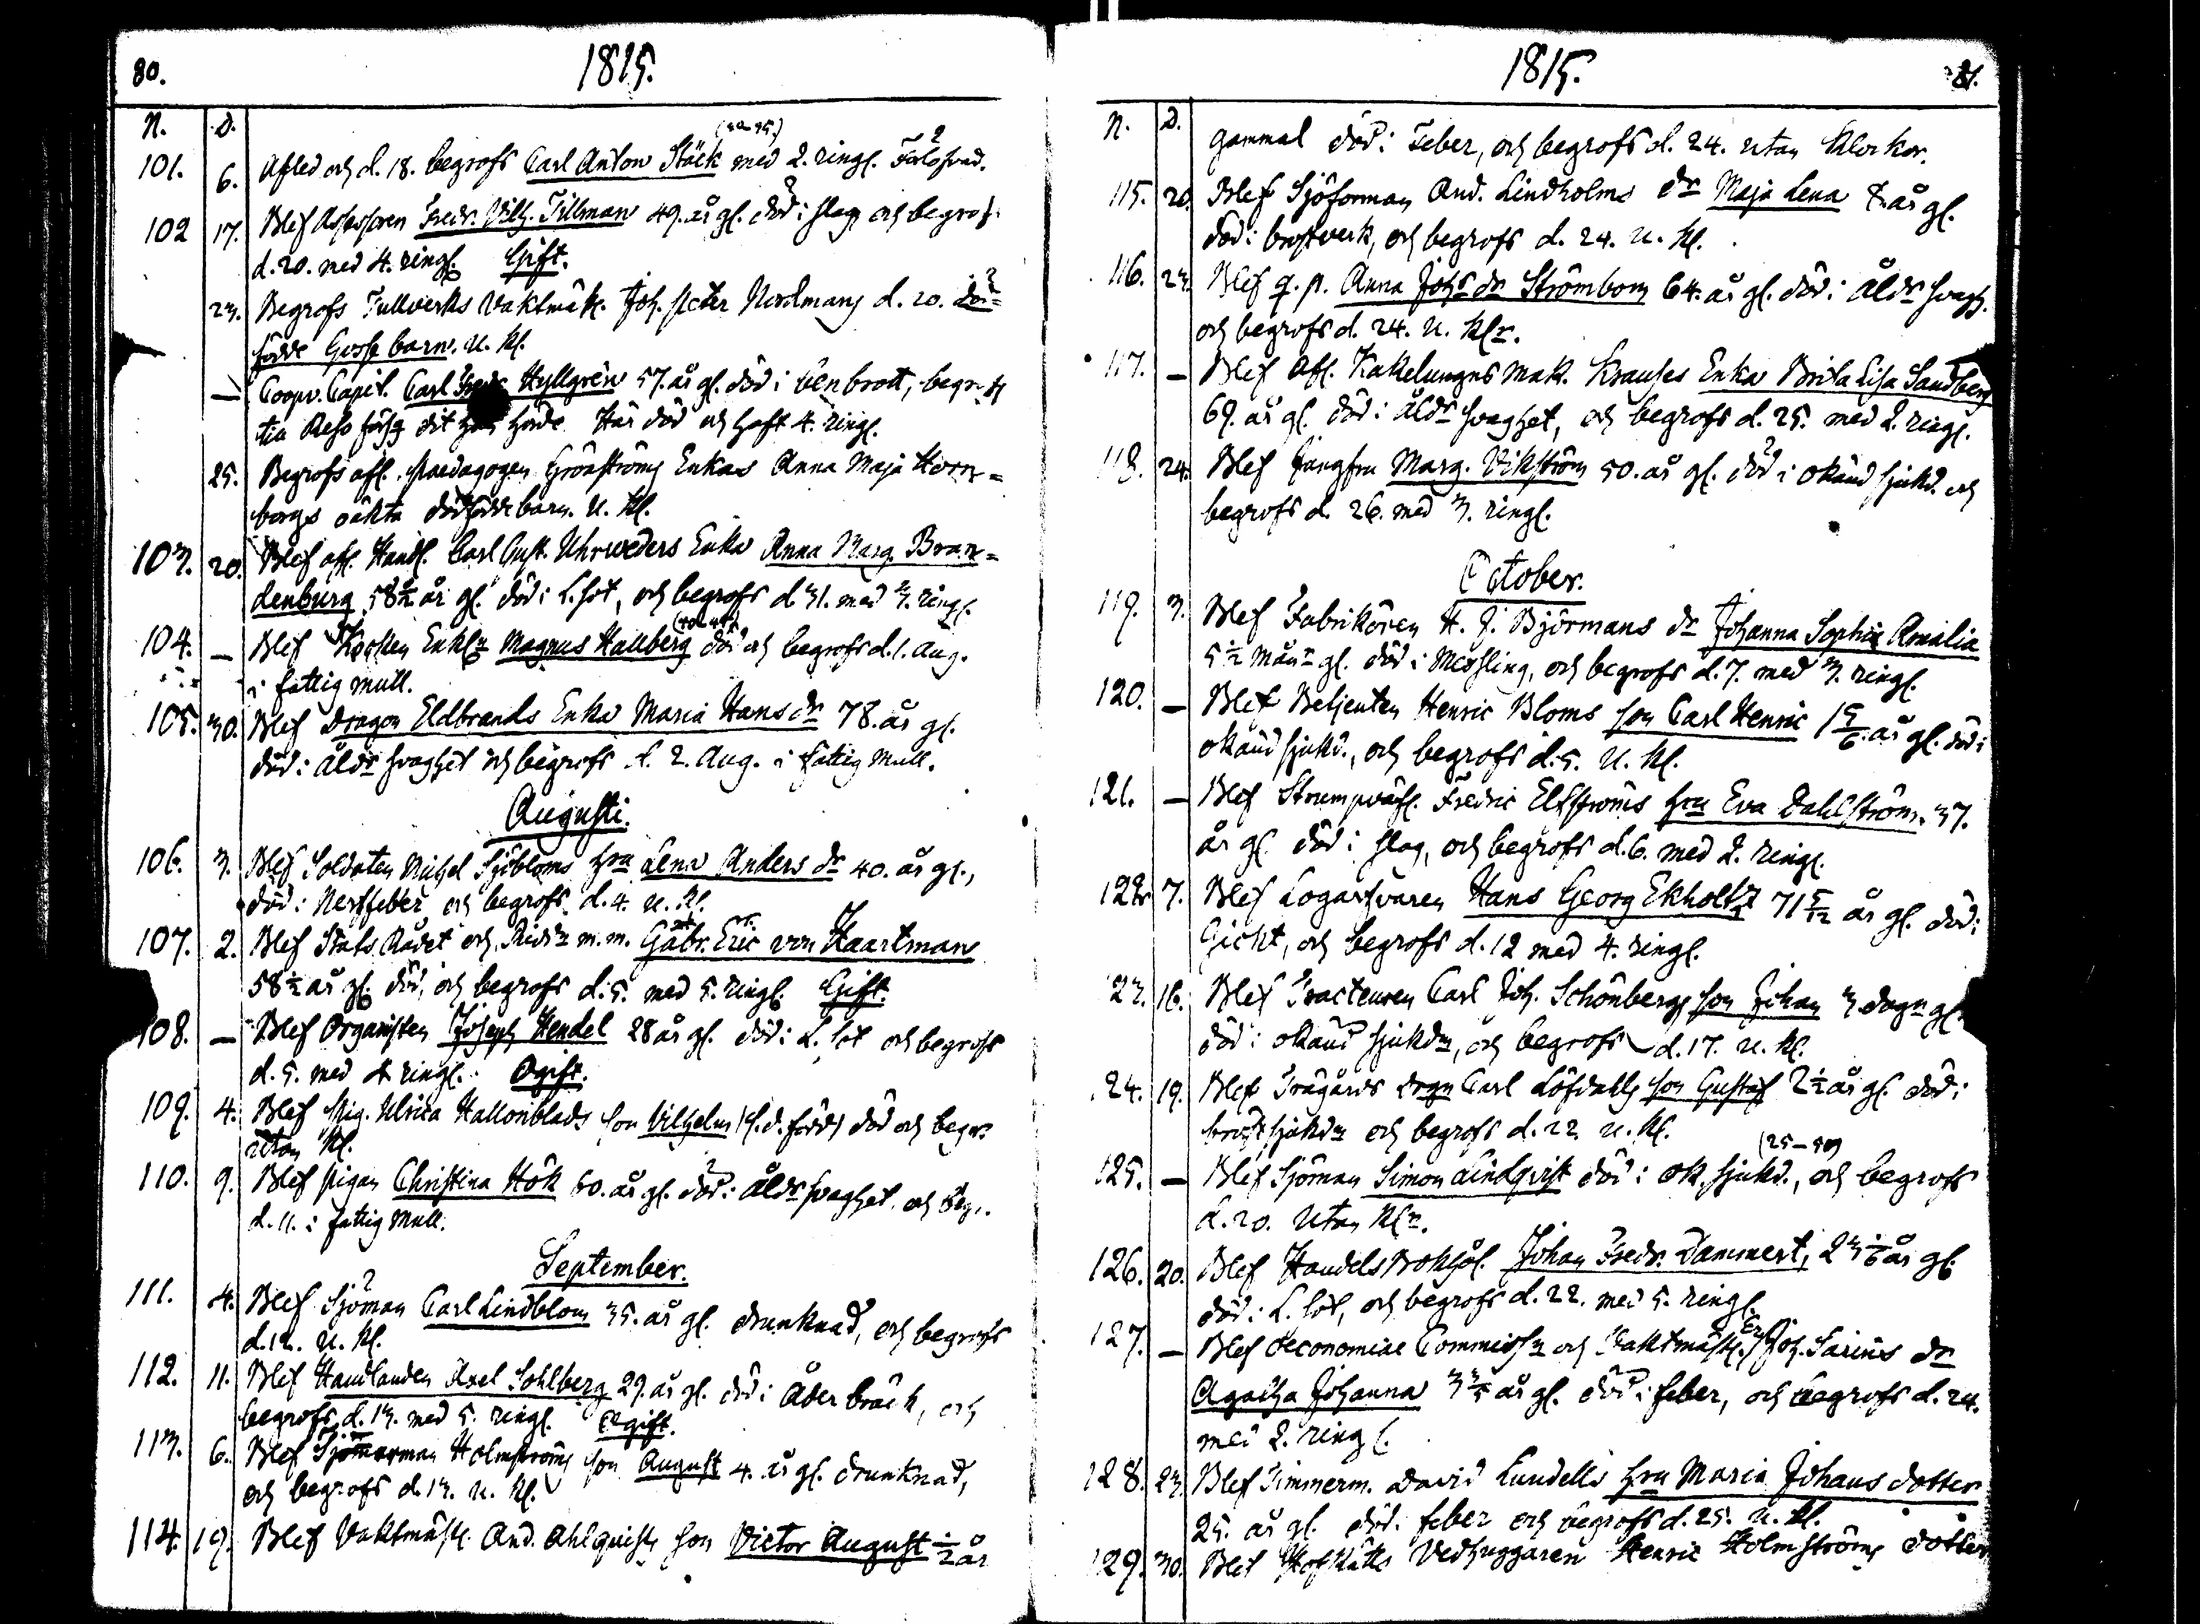 80.
1815.
N. D.
(50-55)
101. 6. Afled och d. 18. begrofs Carl Anton Stäck med 2. ringl.
102 17. Blef Assessoren Fredr. Vilh. Tillman 49. år gl. död i slag och begrof.
d. 20. med 4. ringl. Gift.
23. Begrofs Tullverks Vaktmäst. Joh. Peter Nordmans d. 20. död=
födde Gosse barn. u. kl.
— Coopv. Capit. Carl Fredr. Hyllgrén 57. år gl. död i benbrott,
dit han hörde. Här död och haft 4. ringl.
25. Begrofs afl. Paedagogen Grönströms Enkas Anna Maja Horn=
borgs oäkta dödfödde barn. u. kl.
103. 20. Blef afl. Handl. Carl Gust. Uhrweders Enka Anna Marg. Bran=
denburg 58½ år gl. död i L. sot, och begrofs d. 31. med 3. ringl.
104. — Blef Enkl. Magnus Hallberg död och begrofs d. 1. Aug.
i fattig mull.
105. 30. Blef Dragon Eldbrands Enka Maria Hans dr 78. år gl.
död i åldr svaghet och begrofs d. 2. Aug. i fattig mull.
Augusti.
106. 3. Blef Soldaten Michel Sjöbloms hru Lena Anders dr 40. år gl.,
död i Nerffeber och begrofs d. 4. u. kl.
107. 2. Blef Stats Rådet och Ridd m. m. Gabr. Eric von Haartman
58½ år gl. död, och begrofs d. 5. med 5. ringl. Gift.
108. — Blef Organisten Joseph Hendel 28 år gl. död i L. sot och begrofs
d. 5. med 4 ringl. Ogift.
109. 4. Blef Pig. Ulrica Hallonblads son Vilhelm död och begr.
utan kl.
110. 9. Blef Pigan Christina Hök 60. år gl. död i åldr svaghet, och begr.
d. 11. i fattig mull.
September.
111. 4. Blef Sjöman Carl Lindblom 35. år gl. drunknad, och begrofs
d. 12. u. kl.
112. 11. Blef Handlanden Axel Sohlberg 29. år gl. död i Åderbråck, och
begrofs d. 13. med 5. ringl. Ogift.
113. 6. Blef Holmströms son August 4. år gl. drunknad,
och begrofs d. 13. u. kl.
114. 19. Blef Vaktmäst. And. Ahlqvists son Victor August ½ år
1815.
81.
N. D.
gammal död i Feber, och begrofs d. 24. utan klockor.
115. 20. Blef Sjöforman And. Lindholms dr Maja Lena 8. år gl.
död i bröstverk, och begrofs d. 24. u. kl.
116. 23. Blef q. p. Anna Johs dr Strömbom 64. år gl. död i åldr svagh.
och begrofs d. 24. u. klr.
117. — Blef Afl. Kakelungns mak. Krauses Enka Brita Lisa Sandberg
69. år gl. död i åldr svaghet, och begrofs d. 25. med 2. ringl.
118. 24. Blef Jungfru Marg. Vikström 50. år gl. död i okänd sjukd. och
begrofs d. 26. med 3. ringl.
October.
119. 3. Blef Fabrikören H. J. Björmans dr Johanna Sophia Amalia
5½ månr gl. död i Messling, och begrofs d. 7. med 3. ringl.
120. — Blef Betjenten Henric Bloms son Carl Henric 1 5/6 år gl. död i
okänd sjukd., och begrofs d. 5. u. kl.
121. — Blef Strumpväfv. Fredric Elfströms hru Eva Dahlström 37.
år gl. död i slag, och begrofs d. 6. med 2. ringl.
122. 7. Blef Logarfvaren Hans Georg Ekholtz 71 5/12 år gl. död i
Gickt, och begrofs d. 12 med 4. ringl.
23. 16. Blef Tracteuren Carl Joh. Schönbergs son Johan 3 dagar gl.
död i okänd sjukdm, och begrofs d. 17. u. kl.
24. 19. Blef Trägårds drgn Carl Löfdahls son Gustaf 2½ år gl. död i
bröstsjukdm och begrofs d. 22. u. kl.
(25-50)
125. — Blef Sjöman Simon Lindqvist död i ok. sjukd., och begrofs
d. 20. utan klr.
126. 20. Blef Handels Bokhål. Johan Fredr. Dammert, 23 1/6 år gl.
död i L. sot, och begrofs d. 22. med 5. ringl.
127. — Blef Oeconomiae Commissr och Vaktmäst. Joh. Sarins dr
Agatha Johanna år gl. död i feber, och begrofs d. 24.
med 2. ringl.
128. 23. Blef Timmerm. David Lundells hru Maria Johans dotter
25. år gl. död i feber och begrofs d. 25. u. kl.
129. 30. Blef Hofrätts Vedhuggaren Henric Holmströms dotter